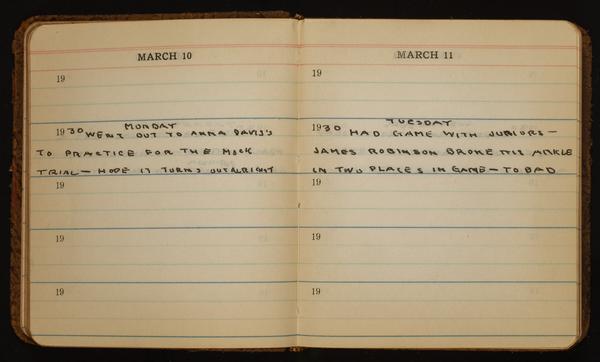 MARCH 10
19
MONDAY
1930 WENT OUT TO ANNA DAVIS'S
TO PRACTICE FOR THE MOCK
TRIAL — HOPE IT TURNS OUT ALRIGHT
19
19
19
MARCH 11
19
TUESDAY
1930 HAD GAME WITH JUNIORS —
JAMES ROBINSON BROKE HIS ANKLE
IN TWO PLACES IN GAME — TO BAD
19
19
19